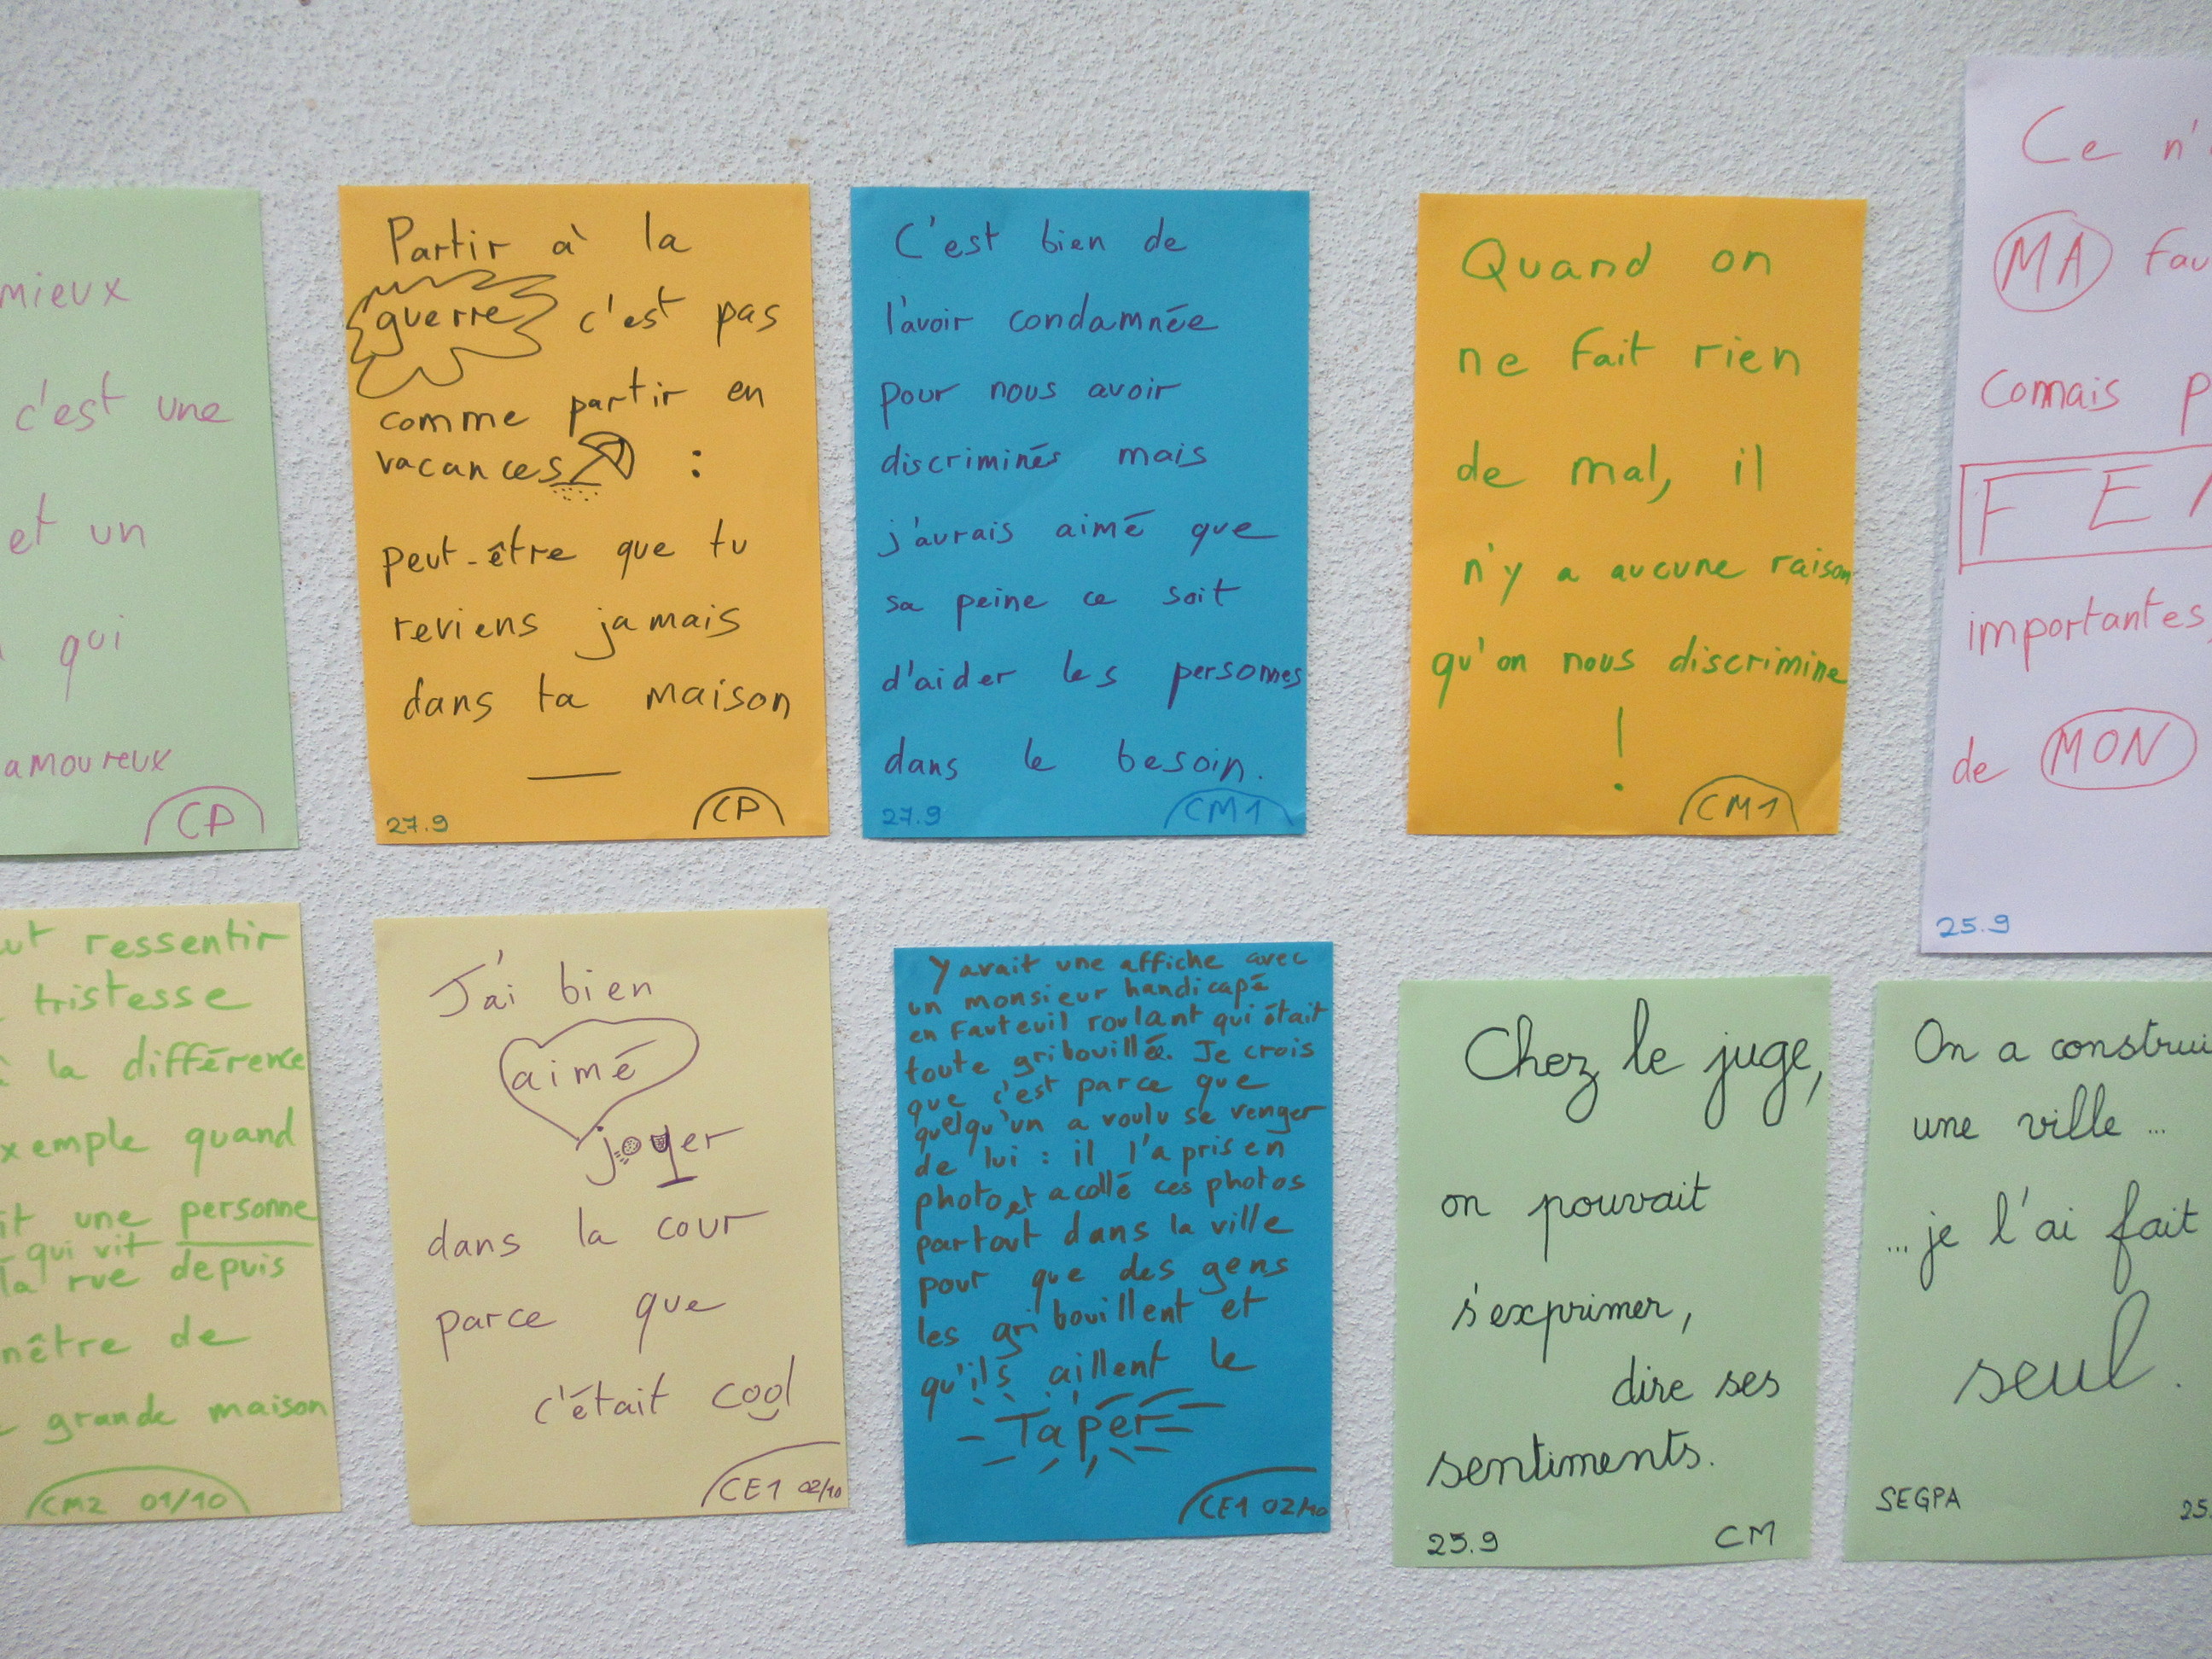 mieux
c'est une
et un
qui
amoureux
CP
Partir à la
guerre c'est pas
comme partir en
vacances :
peut-être que tu
reviens jamais
dans ta maison
27.9 CP
C'est bien de
l'avoir condamnée
pour nous avoir
discriminés mais
j'aurais aimé que
sa peine ce soit
d'aider les personnes
dans le besoin.
27.9 CM1
Quand on
ne fait rien
de mal, il
n'y a aucune raison
qu'on nous discrimine
!
CM1
Ce n'
MA
connais
importantes
de MON
25.9
ressentir
tristesse
la différence
quand
une personne
qui vit
la rue depuis
de
grande maison
CM2 01/10
J'ai bien
aimé
jouer
dans la cour
parce que
c'était cool
CE1 02/10
Y avait une affiche avec
un monsieur handicapé
en fauteuil roulant qui était
toute gribouillée. Je crois
que c'est parce que
quelqu'un a voulu se venger
de lui : il l'a pris en
photo et a collé ces photos
partout dans la ville
pour que des gens
les gribouillent et
qu'ils aillent le
Taper
CE1 02/10
Chez le juge,
on pouvait
s'exprimer,
dire ses
sentiments.
25.9 CM
On a construi
une ville ...
... je l'ai fait
seul.
SEGPA 25.